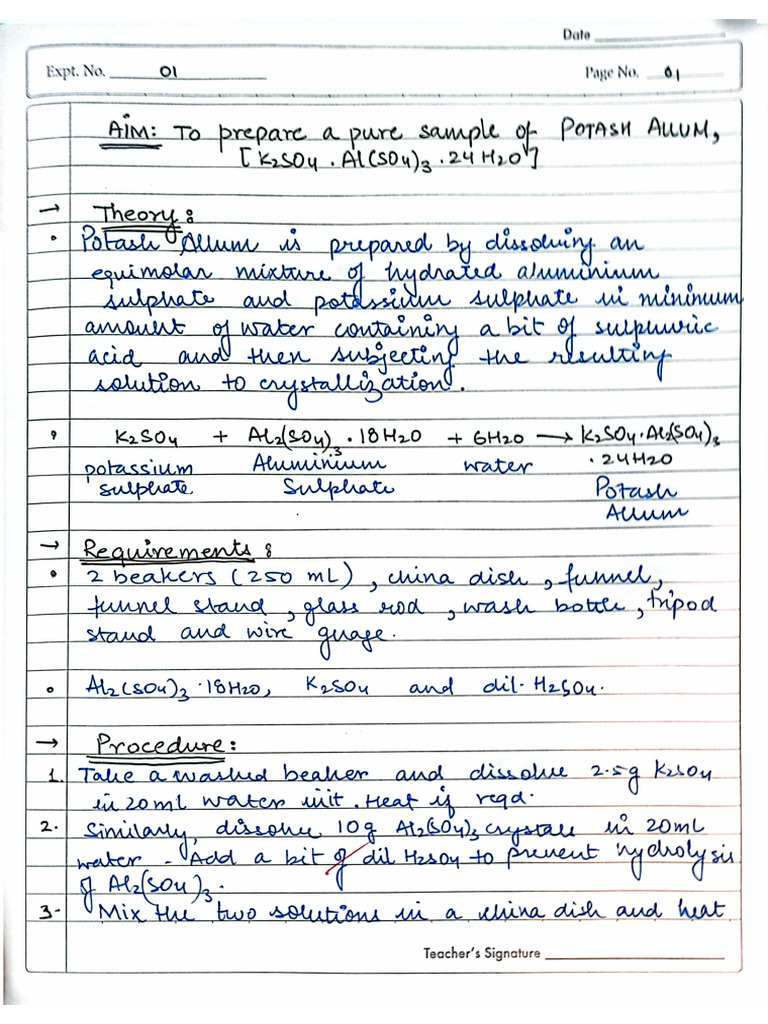 Date
Expt. No. 01
Page No. 01
AIM: To prepare a pure sample of POTASH ALLUM,
[K2SO4 . Al(SO4)3 . 24 H2O]
→ Theory:
• Potash Allum is prepared by dissolving an
equimolar mixture of hydrated aluminium
sulphate and potassium sulphate in minimum
amount of water containing a bit of sulphuric
acid and then subjecting the resulting
solution to crystallization.
K2SO4 + Al2(SO4)3 . 18H2O + 6H2O → K2SO4.Al2(SO4)3
potassium Aluminium water . 24H2O
sulphate Sulphate Potash
Allum
→ Requirements:
• 2 beakers (250 mL), china dish, funnel,
funnel stand, glass rod, wash bottle, tripod
stand and wire guage.
• Al2(SO4)3 . 18H2O, K2SO4 and dil. H2SO4.
→ Procedure:
1. Take a washed beaker and dissolve 2.5g K2SO4
in 20ml water init. Heat if reqd.
2. Similarly, dissolve 10g Al2(SO4)3 crystals in 20mL
water - Add a bit of dil H2SO4 to prevent hydrolysis
of Al2(SO4)3.
3- Mix the two solutions in a china dish and heat
Teacher's Signature